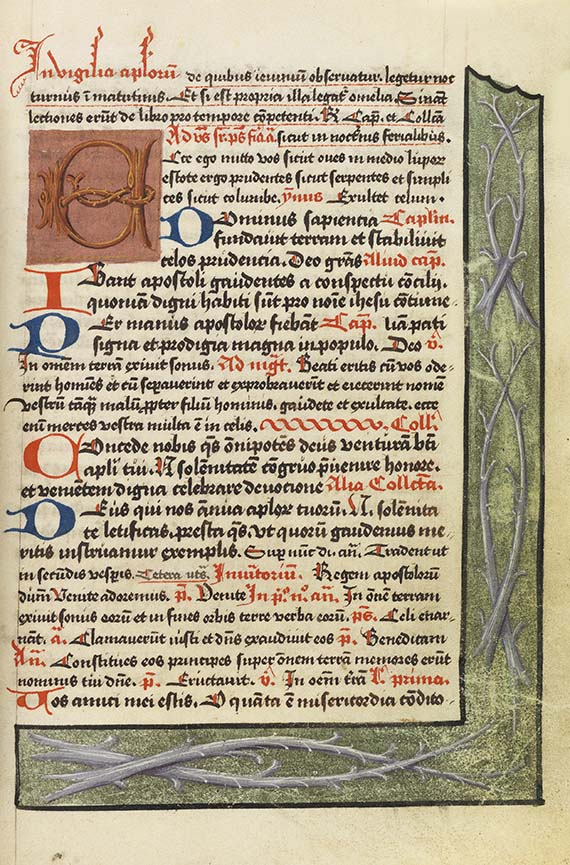 In vigilia aplorū de quibus ieiuniū obseruatur. legetur noc
turnus ī matutinis. Et si est propria illa legat̃ omelia. Sināt
lectiones erūt de libro pro tempore cōpetenti. R̃ Cap̃. et Collcā
Ad vs̃ sr̃. ps̃ fiāā sicut in noct̃nis ferialibus.
Ecce ego mitto vos sicut oues in medio lupor
estote ergo prudentes sicut serpentes et simpli
ces sicut columbe. ymnus Exultet celum.
Dominus sapientia Caplm.
fundauit terram et stabiliuit
celos prudentia. Deo grãs Aliud cap̃.
Ibant apostoli gaudentes a conspectu cōcilij.
quoniā digni habiti sūt pro noīe ihesu cōtume
Per manus apostolor fiebāt Cap̃. liā pati
signa et prodigia magna in populo. Deo v̄.
In omēm terrā exiuit sonus. Ad mgt̃. Beati eritis cū vos ode
rint homīes et cū sepauerint et exprobauerīt et eiecerint nomē
vestrū tāq̃ malū ppter filiū hominis. gaudete et exultate. ecce
enī merces vestra multa ē in celis. Coll̃.
Concede nobis q̃s om̄ipotēs deus venturā bt̄i
apli tui. N̄ solēnitatē cōgruo p̃uenire honore.
et veniētem digna celebrare deuotione Alia Collecta.
Deus qui nos ānua aplor tuorū. N. solēnita
te letificas. presta q̃s. vt quorū gaudemus me
ritis instruamur exemplis. Sup nūc di. an̄. Tradent ut
in secūdis vesp̄is. Cetera ut s̃. Inuitoriū. Regem apostolorū
dūm Venite adoremus. p̄. Venite In p̃o. n̄o. an̄. In ōnē terram
exiuit sonus eorū et in fines orbis terre verba eorū. ps̄. Celi enar
rāt. a. Clamauerūt iusti et dn̄s exaudiuit eos p̄. Benedicam
An̄. Constitues eos principes super ōnem terrā memores erūt
nominis tui dn̄e. p̄. Eructauit. v̄. In oēm t̄rā L̄ prima.
Vos amici mei estis. O quāta ē misericordia cōdito